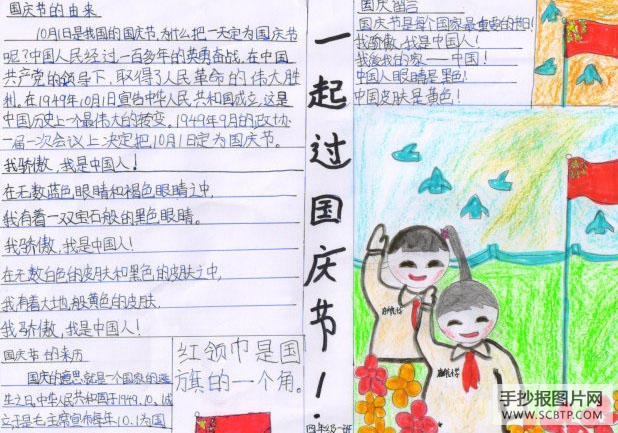 国庆节的由来
10月1日是我国的国庆节,为什么把一天定为国庆节
呢?中国人民经过一百多年的英勇奋战,在中国
共产党的领导下,取得了人民革命的伟大胜
利,在1949年10月1日宣告中华人民共和国成立,这是
中国历史上一个最伟大的转变。1949年9月的政协
一届一次会议上决定把10月1日定为国庆节。
我骄傲,我是中国人!
在无数蓝色眼睛和褐色眼睛之中,
我有着一双宝石般的黑色眼睛。
我骄傲,我是中国人!
在无数白色的皮肤和黑色的皮肤之中,
我有着大地般黄色的皮肤,
我骄傲,我是中国人!
国庆节的来历
国庆的意思,就是一个国家的诞
生之日,中华人民共和国于1949.10.1成
立于是毛主席宣布每年10.1为国
红领巾是国
旗的一个角。
一起过国庆节!
国庆留言
国庆节是每个国家最重要的节日!
我骄傲,我是中国人!
我爱我的家——中国!
中国人眼睛是黑色!
中国皮肤是黄色!
手抄报图片网
WWW.SCBTP.COM